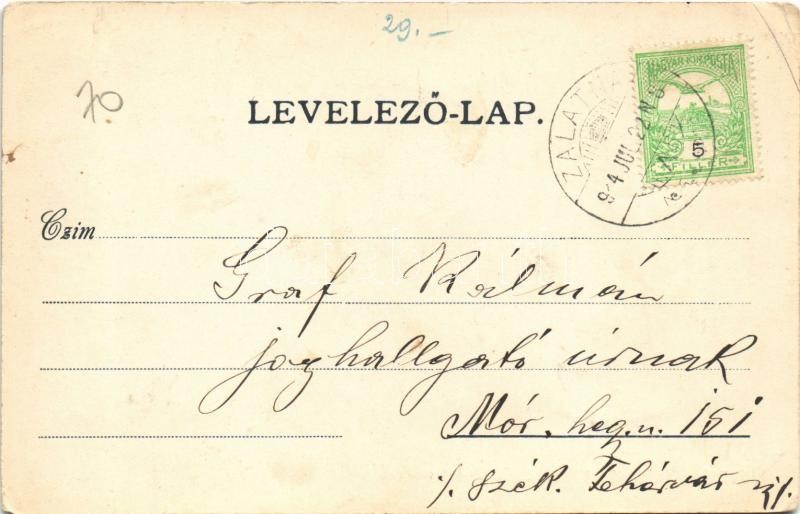 29.-
70
LEVELEZŐ-LAP.
MAGYAR KIR. POSTA
ZALATNA
904 JUL. 22 N 5
5
FILLER
Czim
Graf Kálmán
joghallgató úrnak
Mór. heg.u. 151
/. Szék. Fehérvár